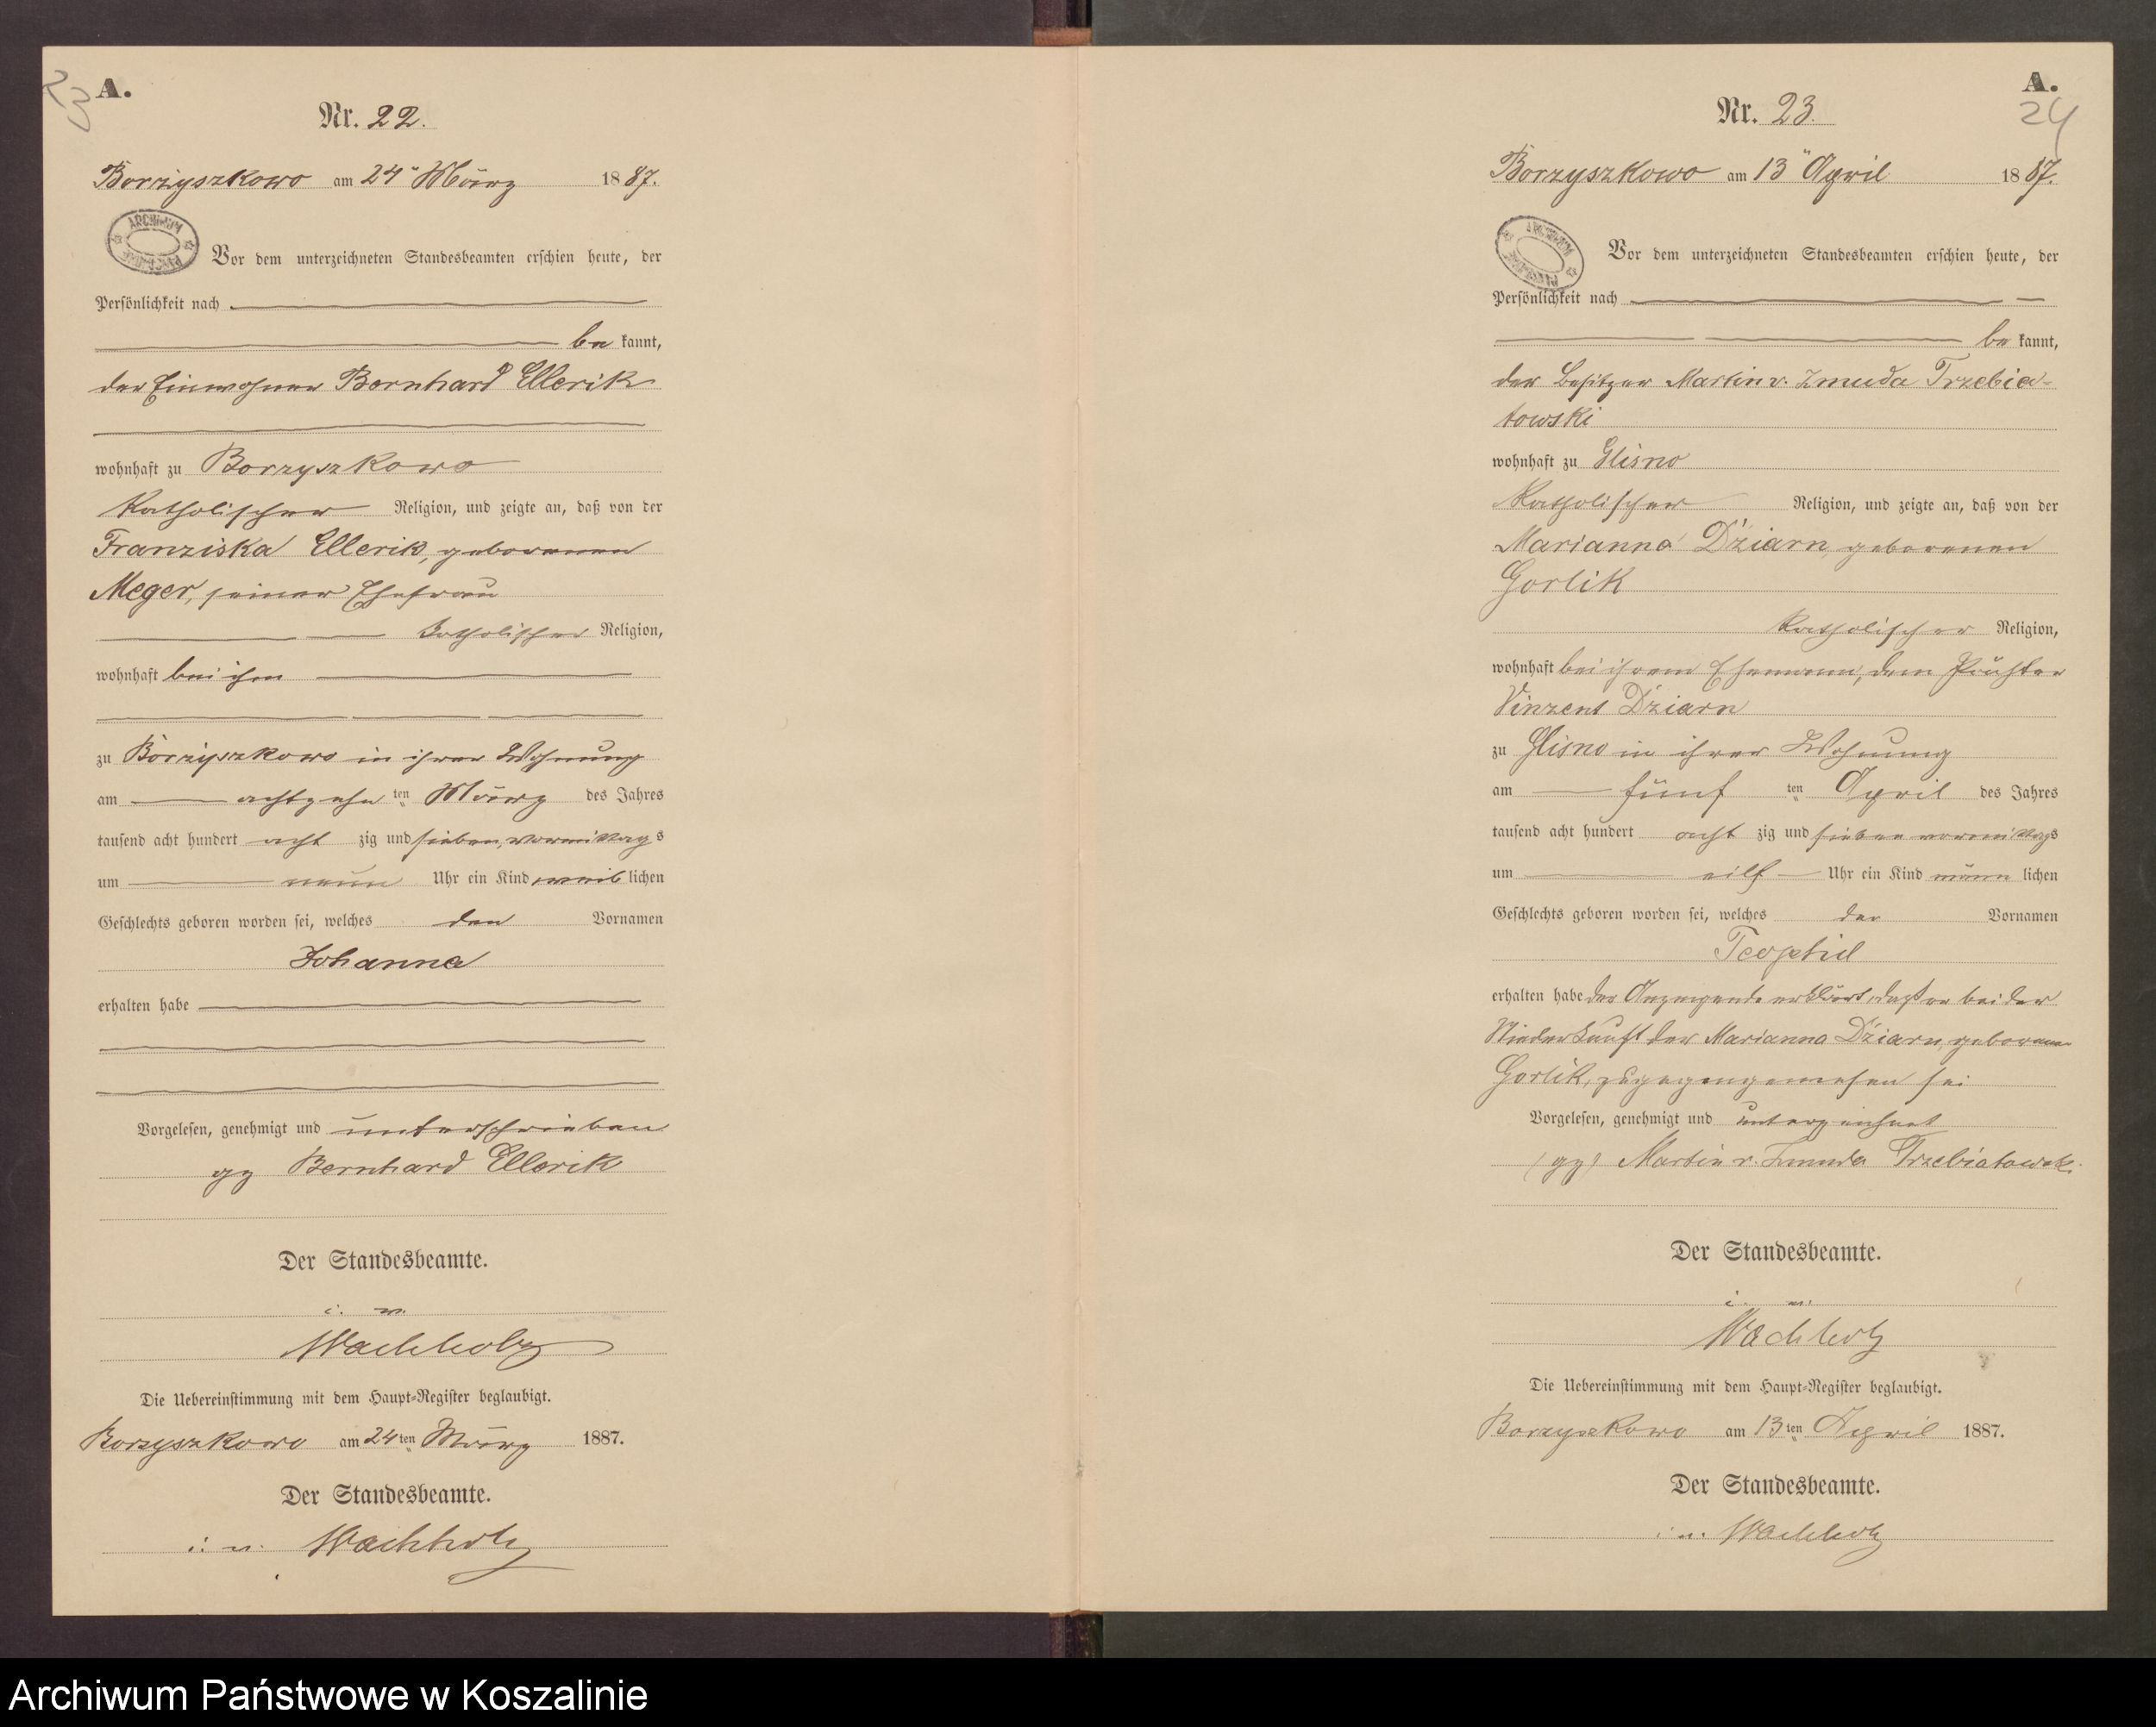 23
A.
Nr. 22.
Borzyszkowo am 24" März 1887.
ARCHIWUM
Vor dem unterzeichneten Standesbeamten erschien heute, der
Persönlichkeit nach
be kannt,
der Einwohner Bernhard Ellerik
wohnhaft zu Borzyszkowo
katholischer Religion, und zeigte an, daß von der
Franziska Ellerik, geborenen
Meger, seiner Ehefrau
katholischer Religion,
wohnhaft bei ihm
zu Borzyszkowo in ihrer Wohnung
am achtzehn ten März des Jahres
tausend acht hundert acht zig und sieben, vormittags
um neun Uhr ein Kind weib lichen
Geschlechts geboren worden sei, welches den Vornamen
Johanna
erhalten habe
Vorgelesen, genehmigt und unterschrieben
gz Bernhard Ellerik
Der Standesbeamte.
i. v.
Wachholz
Die Uebereinstimmung mit dem Haupt-Register beglaubigt.
Borzyszkowo am 24ten März 1887.
Der Standesbeamte.
i. v. Wachholz
A.
24
Nr. 23.
Borzyszkowo am 13" April 1887.
ARCHIWUM
Vor dem unterzeichneten Standesbeamten erschien heute, der
Persönlichkeit nach
be kannt,
der Besitzer Martin v. Zmuda Trzebia-
towski
wohnhaft zu Glisno
katholischer Religion, und zeigte an, daß von der
Marianna Dźiarn, geborenen
Gorlik
katholischer Religion,
wohnhaft bei ihrem Ehemann, dem
Vinzent Dźiarn
zu Glisno in ihrer Wohnung
am fünf ten April des Jahres
tausend acht hundert acht zig und sieben vormittags
um eilf Uhr ein Kind männ lichen
Geschlechts geboren worden sei, welches den Vornamen
Teophil
erhalten habe der Anzeigende erklärt, daß er bei der
Niederkunft der Marianna Dźiarn, geborenen
Gorlik, zugegen gewesen sei
Vorgelesen, genehmigt und unterzeichnet
(gz) Martin v. Zmuda Trzebiatowski.
Der Standesbeamte.
i. v.
Wachholz
Die Uebereinstimmung mit dem Haupt-Register beglaubigt.
Borzyszkowo am 13ten April 1887.
Der Standesbeamte.
i. v. Wachholz
Archiwum Państwowe w Koszalinie